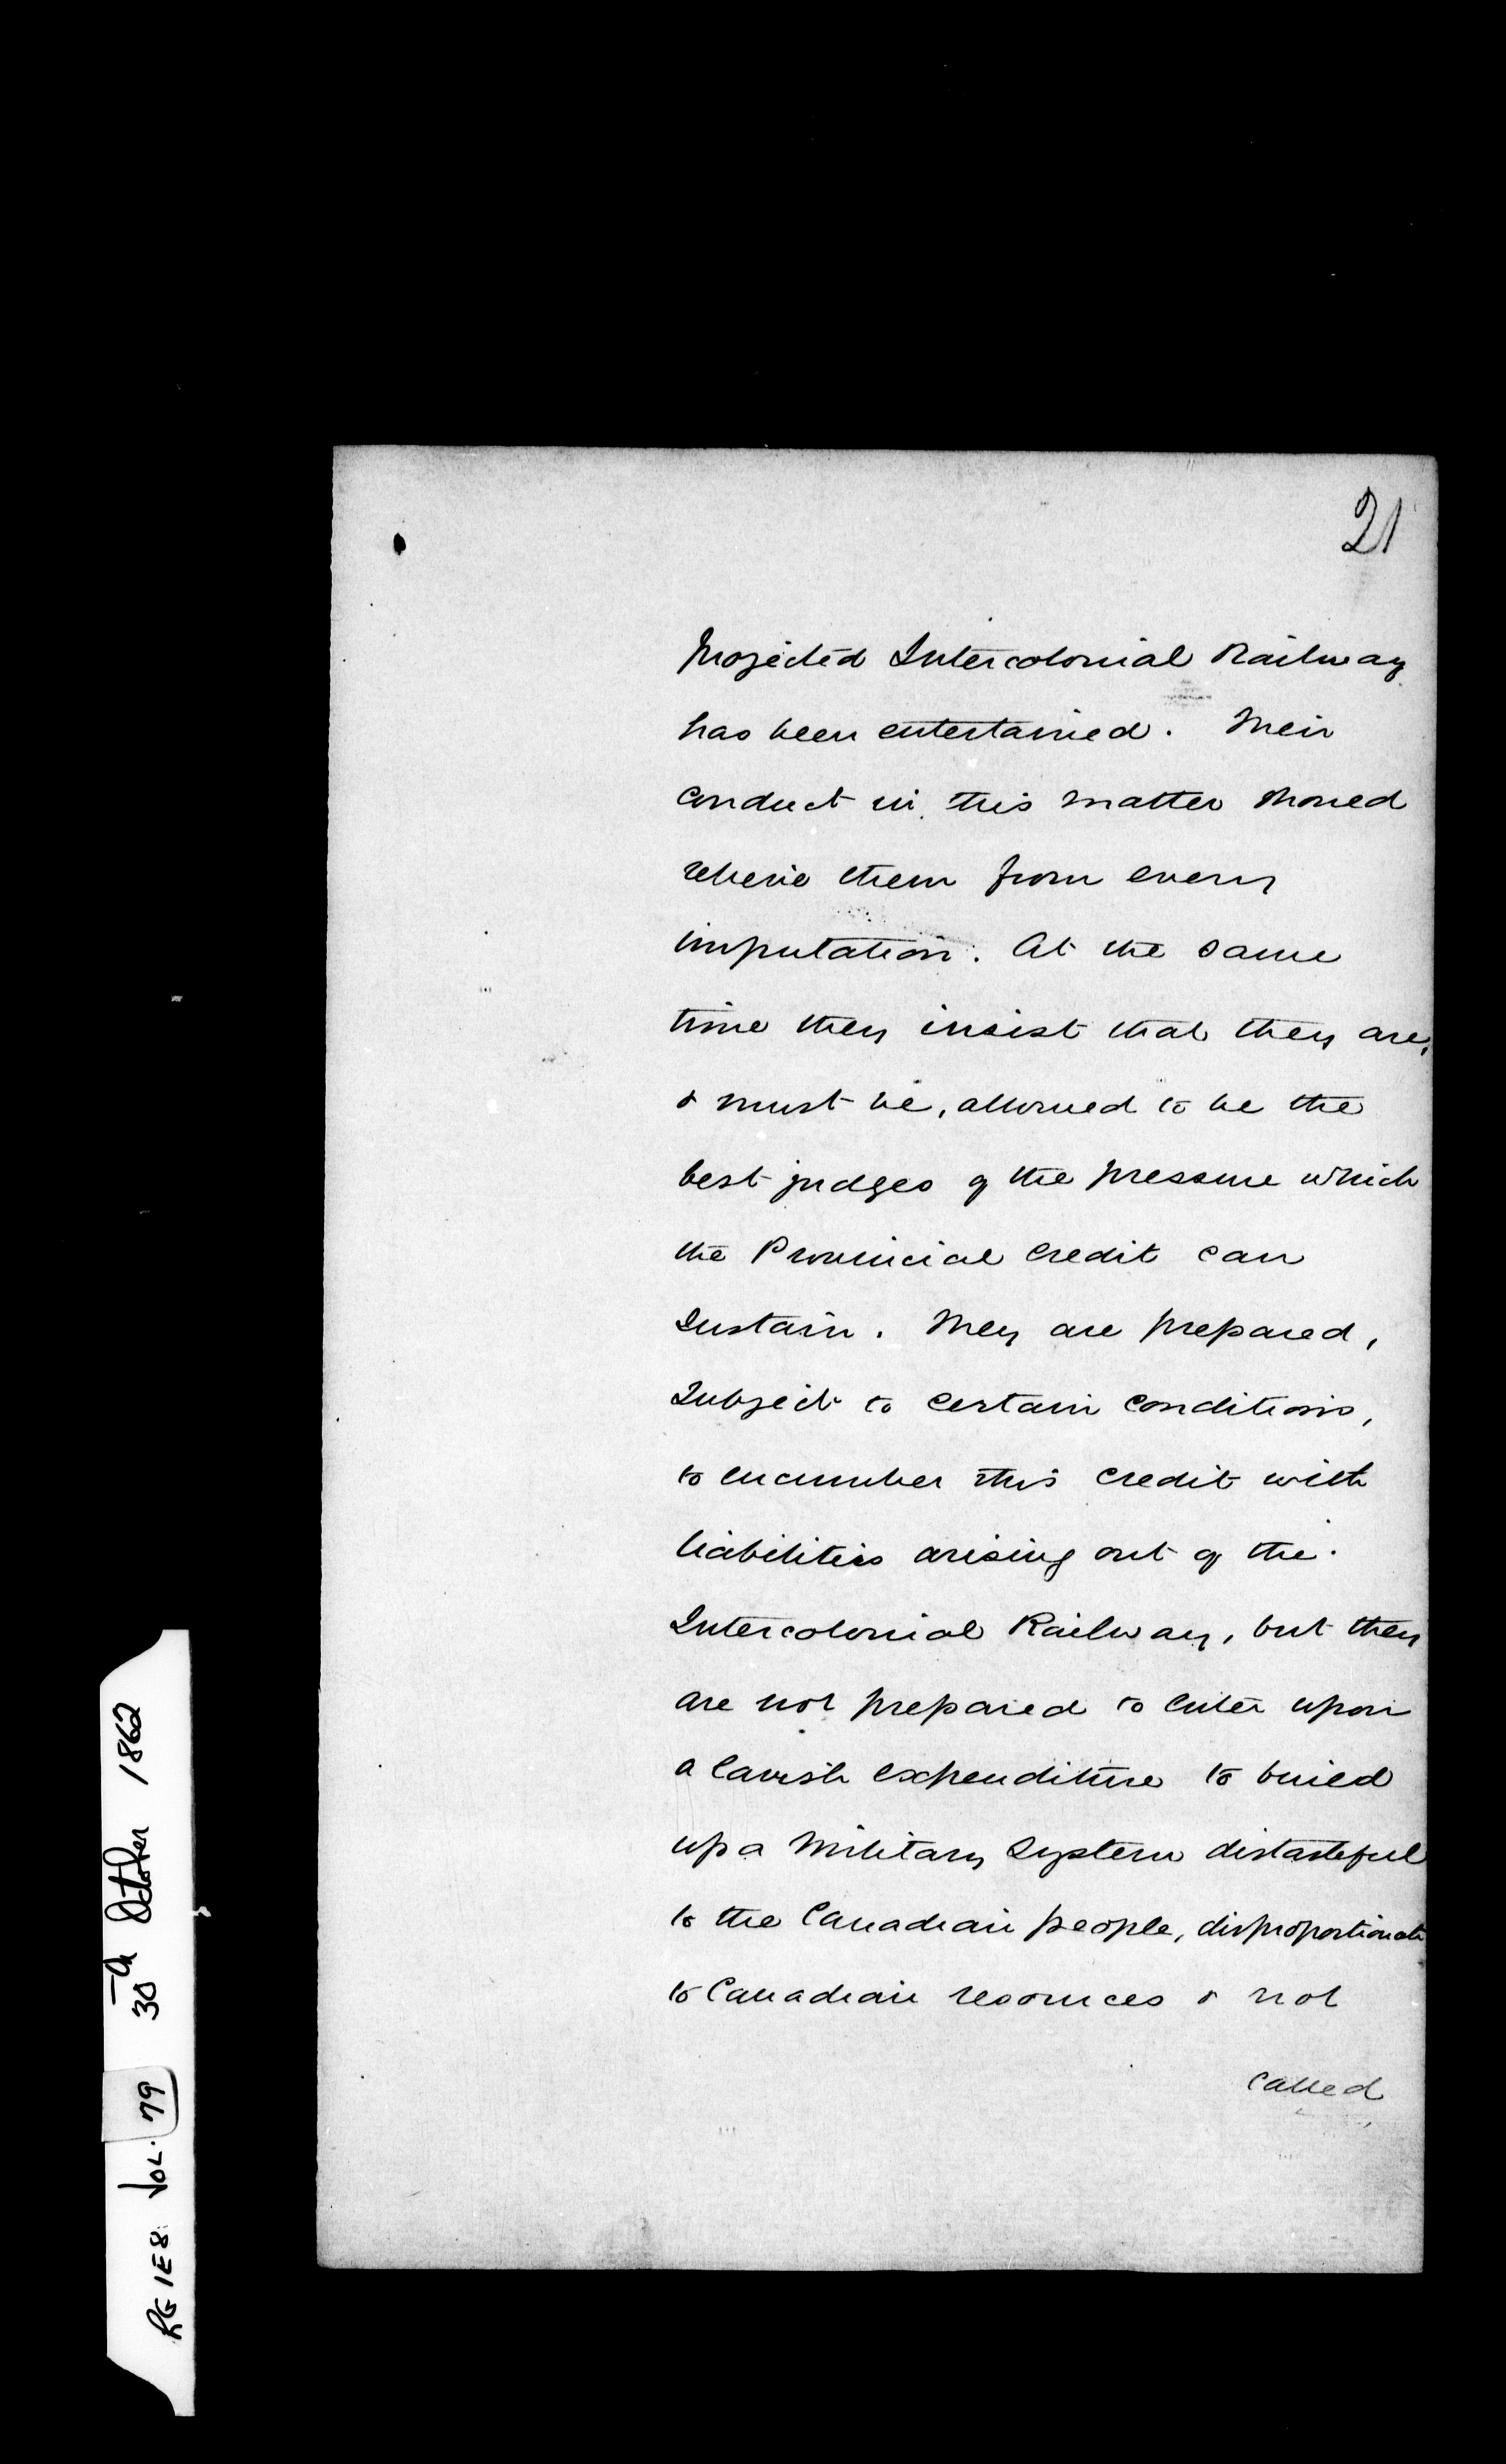 21
projected Intercolonial Railway
has been entertained. Their
conduct in this matter should
relieve them from every
imputation. At the same
time they insist that they are,
& must be, allowed to be the
best judges of the pressure which
the Provincial Credit can
sustain. They are prepared,
subject to certain conditions,
to encumber this credit with
liabilities arising out of the
Intercolonial Railway, but they
are not prepared to enter upon
a lavish expenditure to build
up a military system distasteful
to the Canadian people, disproportionate
to Canadian resources & not
called
RG 1E8 VOL. 79 30th October 1862